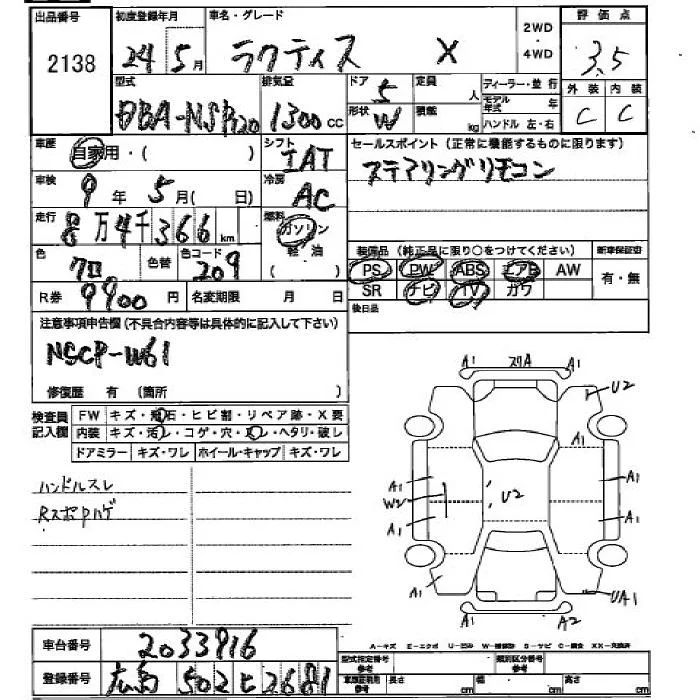 出品番号 初度登録年月 車名・グレード 2WD ・ 4WD 評価点
2138 24年5月 ラクティス X 3.5
型式 排気量 ドア 5 定員 人 ディーラー・並行 外装 内装
DBA-NSP120 1300cc 形状 W 積載 kg モデル年式 年 C C
ハンドル 左・右
車歴 自家用・( ) シフト IAT セールスポイント(正常に機能するものに限ります)
車検 9年5月( 日) 冷房 AC ステアリングリモコン
走行 8万4千366km 燃料 ガソリン 軽油 ( )
色 クロ 色替 色コード 209 装備品(純正品に限り○をつけてください) 新車保証書
PS PW ABS エアB AW 有・無
R券 9900円 名変期限 月 日 SR ナビ TV ガワ
後日品
注意事項申告欄(不具合内容等は具体的に記入して下さい)
NSCP-W61
修復歴 有 (箇所 )
検査員記入欄 FW キズ・飛石・ヒビ割・リペア跡・X要
内装 キズ・汚レ・コゲ・穴・スレ・ヘタリ・破レ
ドアミラー キズ・ワレ ホイール・キャップ キズ・ワレ
ハンドルスレ
RスポPハゲ
A1 スリA A1
U2
A1
A1 A1
W2 U2
A1 A1
A1 UA1
A1 A2
A-キズ E-エクボ U-凹み W-補修跡 S-サビ C-腐食 XX-交換済
車台番号 2033916
型式指定番号 参考 類別区分番号 参考
登録番号 広島 502 ヒ 2681
車庫証明用 参考 長さ cm 幅 cm 高さ cm